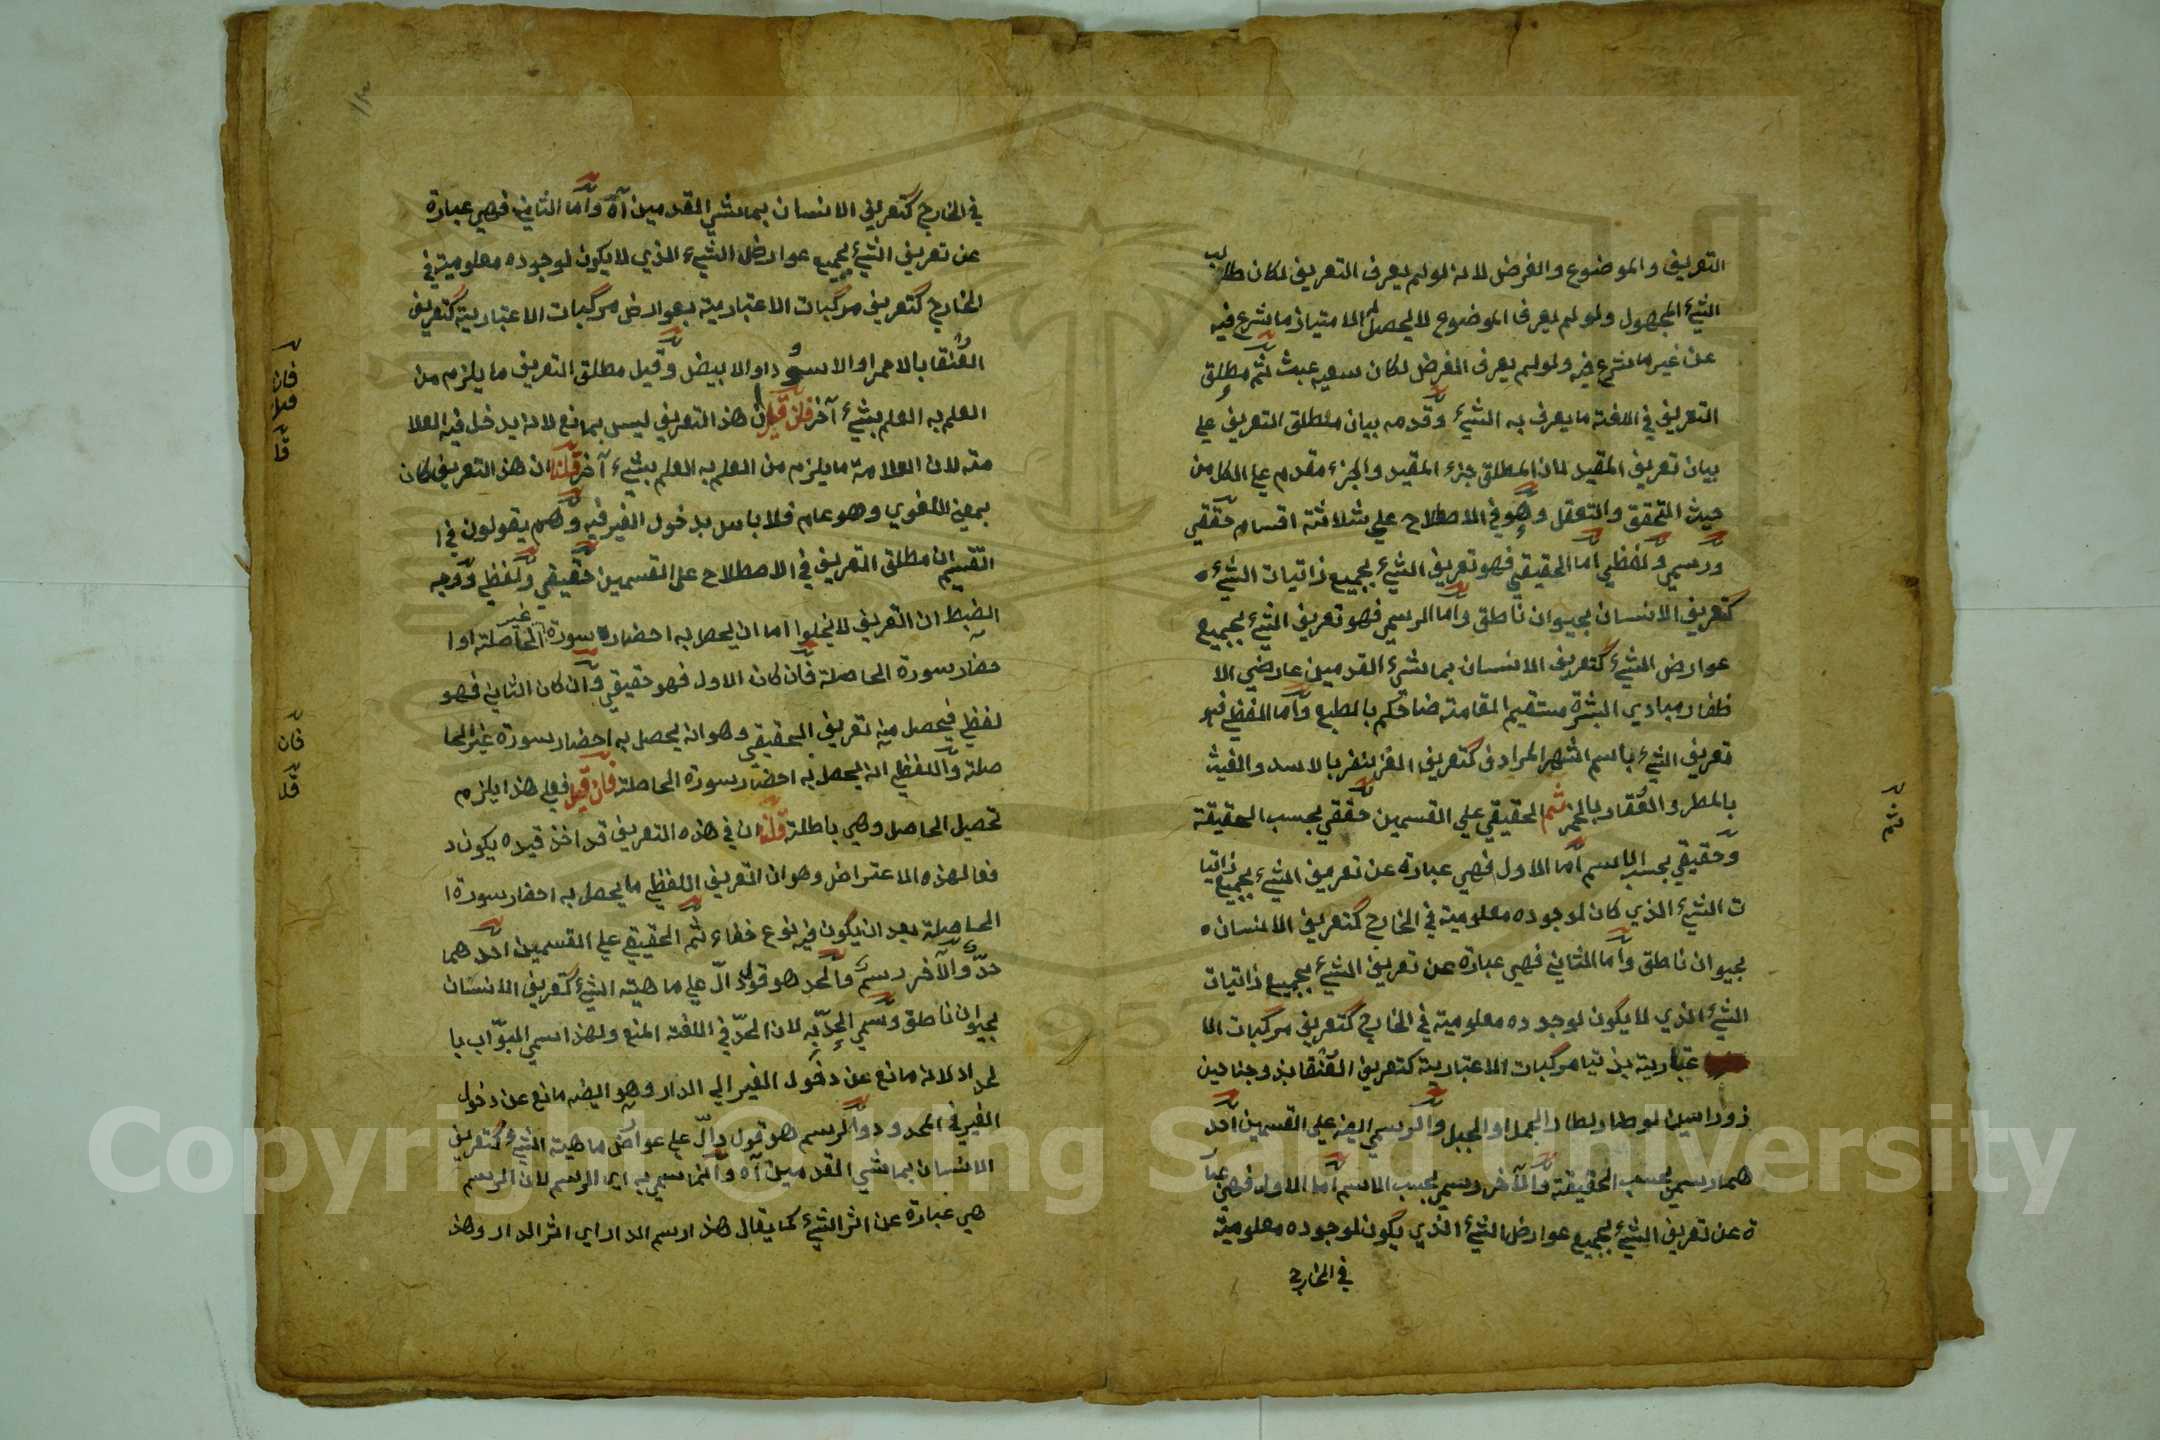 التعريف والموضوع والغرض لانه لو لم يعرف التعريف لكان طلب
الشيء المجهول ولو لم يعرف الموضوع لا يحصل له الامتياز ما شرع فيه
عن غير ما شرع فيه ولو لم يعرف الغرض لكان سعيه عبث ثم مطلق
التعريف في اللغة ما يعرف به الشيء وقدمه بيان مطلق التعريف علي
بيان تعريف المقيد لان المطلق جزء المقيد والجزء مقدم علي الكل من
حيث التحقق والتعقل وهو في الاصطلاح علي ثلاثة اقسام حققي
ورسمي ولفظي اما الحقيقي فهو تعريف الشيء بجميع ذاتيات الشيء ه
كتعريف الانسان بحيوان ناطق واما الرسمي فهو تعريف الشيء بجميع
عوارض الشيء كتعريف الانسان بماشيء القدمين عارضي الا
ظفار مبادي البشرة مستقيم القامة ضاحكم بالطبع واما اللفظي فهو
تعريف الشيء باسم اشهر المرادف كتعريف الغزنفر بالاسد والغيث
بالمطر والعقار بالخمر ثم الحقيقي علي القسمين حققي بحسب الحقيقة
وحقيقي بحسب الاسم اما الاول فهي عبارة عن تعريف الشيء بجميع ذاتيا
ت الشيء الذي كان لوجوده معلومية في الخارج كتعريف الانسان ه
بحيوان ناطق واما الثاني فهي عبارة عن تعريف الشيء بجميع ذاتيات
الشيء الذي لا يكون لوجوده معلومية في الخارج كتعريف مركبات الا
عتبارية بذتيا مركبات الاعتبارية كتعريف العنقا بذو جناحين
ذو راسين لو طار لطار الجمل او الجبل والرسمي ايضه علي القسمين احد
هما رسمي بحسب الحقيقة والآخر رسمي بحسب الاسم اما الاول فهي عبا
رة عن تعريف الشيء بجميع عوارض الشيء الذي يكون لوجوده معلومية
في الخارج
ثم
في الخارج كتعريف الانسان بماشي القدمين آه واما الثاني فهي عبارة
عن تعريف الشيء بجميع عوارض الشيء الذي لا يكون لوجوده معلومية في
الخارج كتعريف مركبات الاعتبارية بعوارض مركبات الاعتبارية كتعريف
العنقا بالاحمر او الاسود او الابيض وقيل مطلق التعريف ما يلزم من
العلم به العلم بشيء آخر فان قيل ان هذ التعريف ليس بمانع لانه يدخل فيه العلا
مته لان العلامة ما يلزم من العلم به العلم بشيء آخر قلنا ان هذ التعريف كان
بمعن اللغوي وهو عام فلا باس بدخول الغير فيه وهم يقولون في ا
التقسيم ان مطلق التعريف في الاصطلاح على القسمين حقيقي ولفظي ووجه
الضبط ان التعريف لا يخلوا اما ان يحصل به احضار سورة غير الحاصلة او ا
حضار سورة الحاصلة فان كان الاول فهو حقيقي وان كان الثاني فهو
لفظي فيحصل منه تعريف الحقيقي وهو انه يحصل به احضار سورة غير الحا
صلة واللفظي انه يحصل به احضار سورة الحاصلة فان قيل فعلي هذا يلزم
تحصيل الحاصل وهي باطلة قلنا ان في هذه التعريف قد اخذ قيده يكون د
فعا لهذه الاعتراض وهو ان التعريف اللفظي ما يحصل به احضار سورة ا
الحاصلة بعد ان يكون فيه نوع خفاء ثم الحقيقي علي القسمين احد هما
حدّ والآخر رسم والحد هو قول دالّ علي ماهية الشيء كتعريف الانسان
بحيوان ناطق وسمي الحدّ به لان الحدّ في اللغة المنع ولهذا سمي البوّاب با
لحداد لانه مانع عن دخول الغير الي الدار وهو ايضه مانع عن دخول
الغير في المحدود والرسم هو قول دالّ علي عوارض ماهية الشيء كتعريف
الانسان بماشي القدمين آه وانما سمي به اي الرسم لان الرسم
هي عبارة عن اثر الشيء كما يقال هذ ارسم الدار اي اثر الدار وهذ
فان
قلا
قلـ
فان
قلـ
Copyright © King Saud University